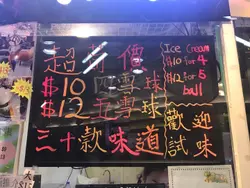 超特價
$10 四雪球
$12 五雪球
三十款味道
Ice Cream
$10 for 4
$12 for 5
ball
歡迎
試味